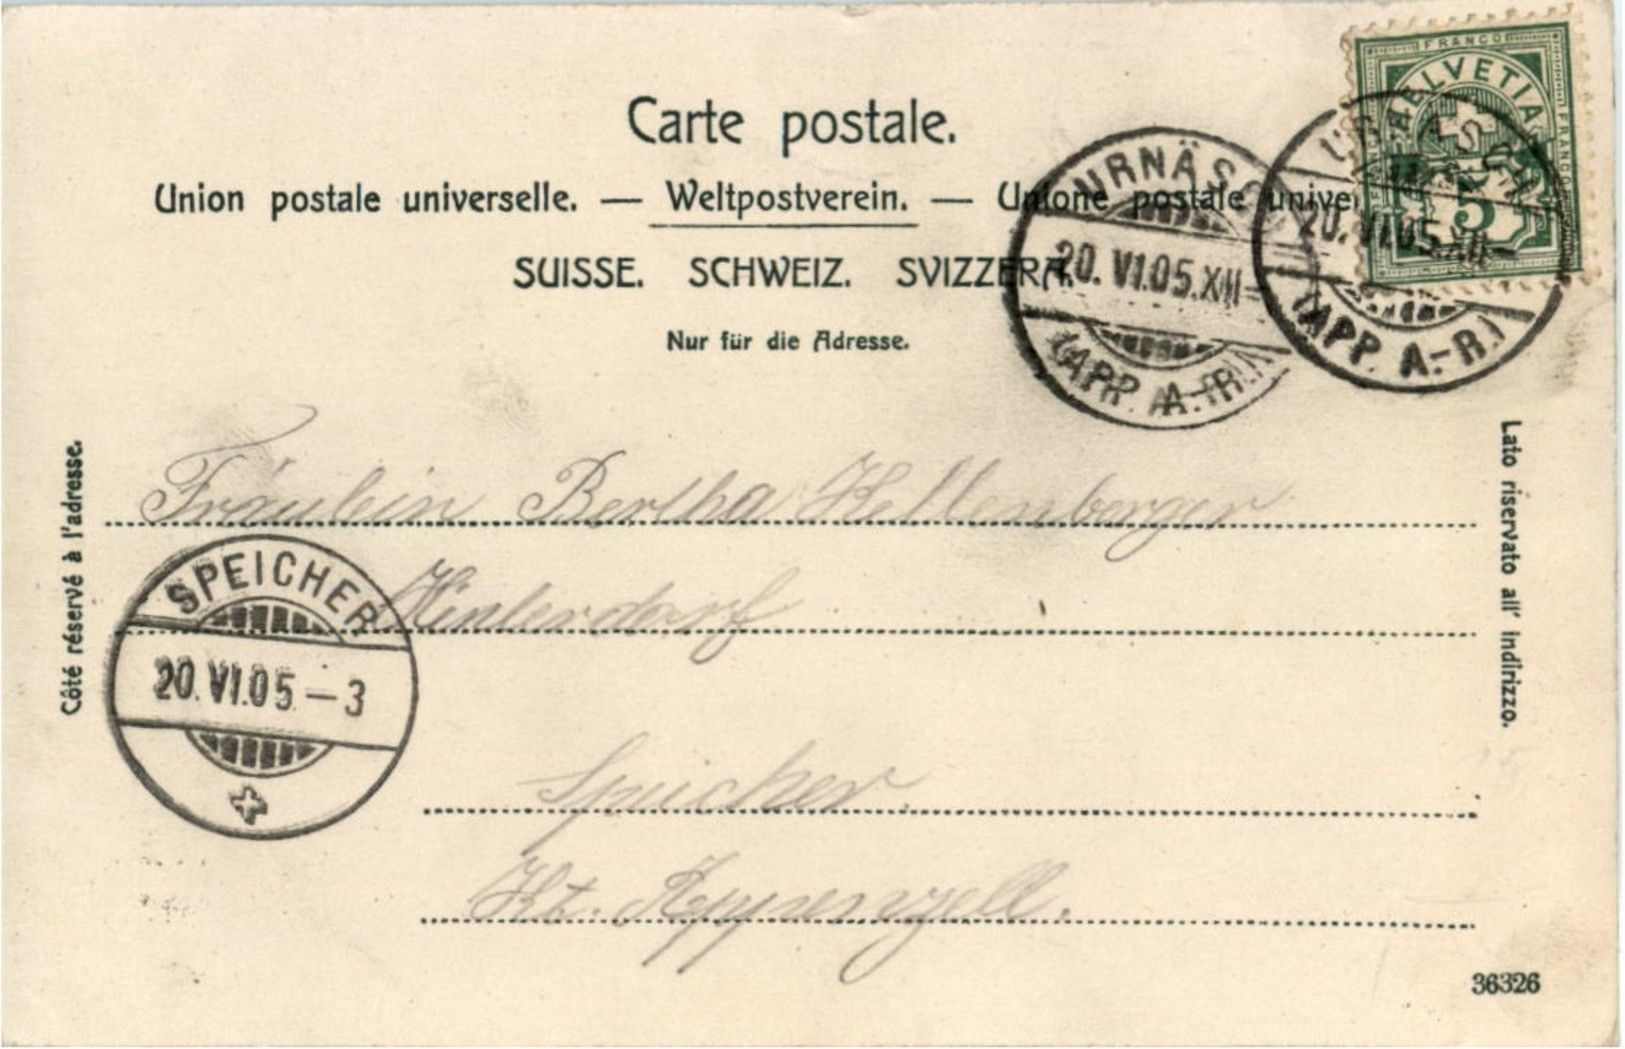 FRANCO
HELVETIA
FRANCO
5
Carte postale.
Union postale universelle. — Weltpostverein. — Unione postale univer
SUISSE. SCHWEIZ. SVIZZERA.
Nur für die Adresse.
URNÄSCH
20. VI.05.XII–
(APP. A.-RH.)
URNÄSCH
20. VI.05.XII–
(APP. A.-R.)
Côté réservé à l'adresse.
Lato riservato all' indirizzo.
Fräulein Bertha Kellenberger
Hinterdorf
SPEICHER
20. VI.05.–3
Speicher.
Kt. Appenzell.
36326